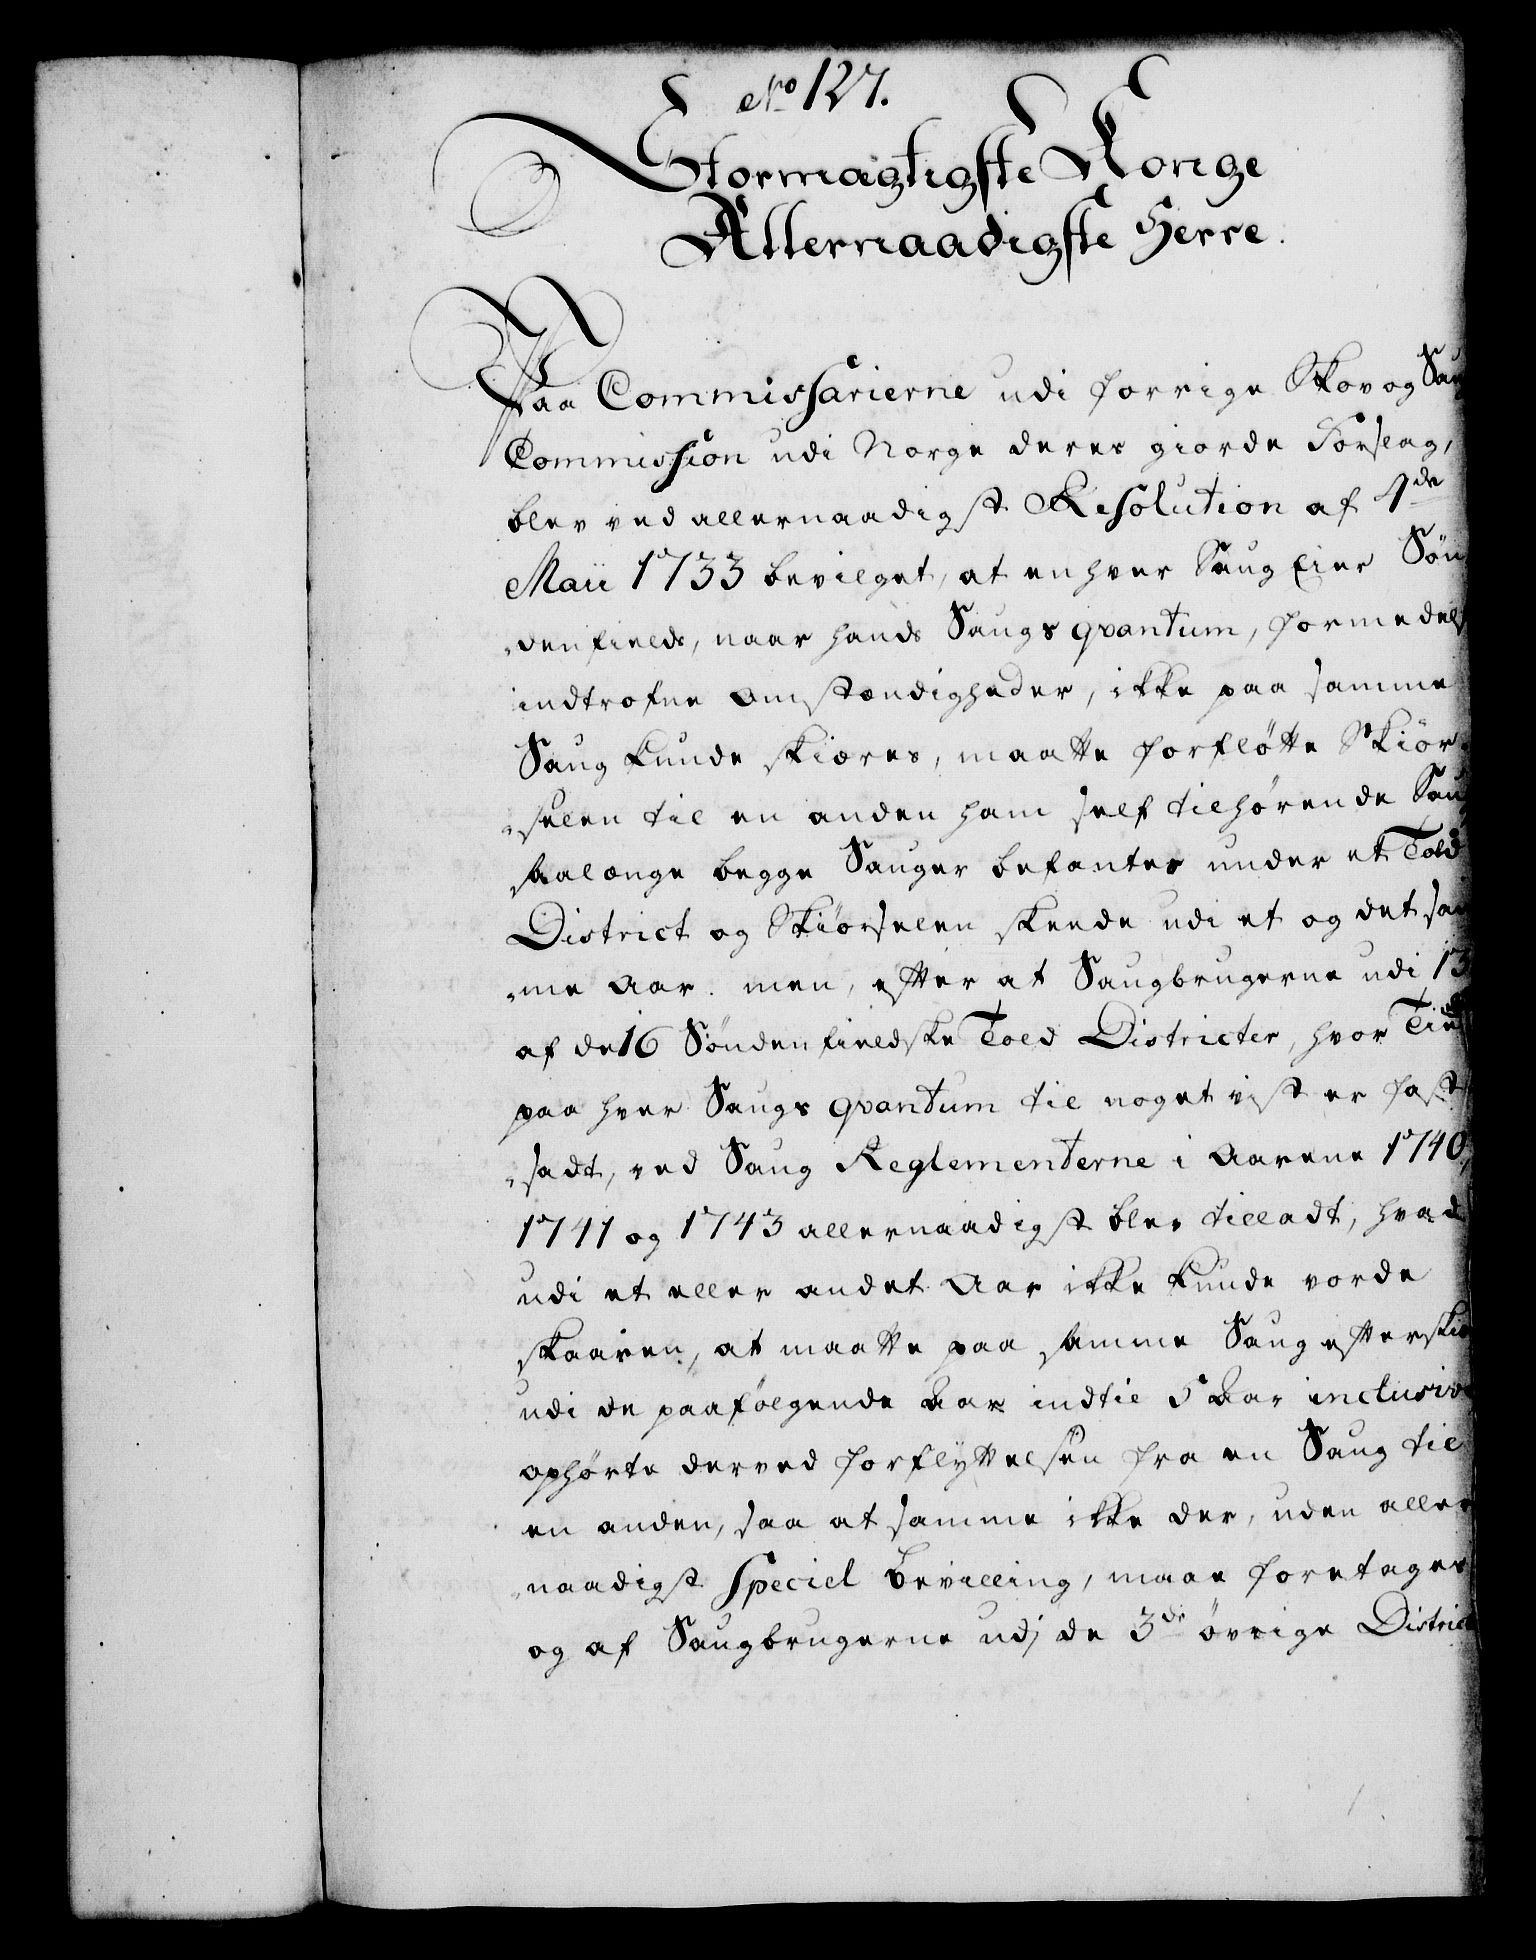 No 127.
Stormægtigste Konge
Allernaadigste Herre.
Paa Commissarierne udi forrige Skov og Saug
Commission udi Norge deres giorde Forslag,
blev ved allernaadigst Resolution af 1de
Maii 1733 bevilget, at enhver Saug Eier Søn
-denfields, naar hands Saugs qvantum, formedelst
indtrofne Omstændigheder, ikke paa samme
Saug kunde skiæres, maatte forfløtte Skiør
-selen til en anden ham self tilhørende Saug
saalænge begge Sauger befantes under et Told
District og Skiørselen skeede udi et og det sam
-me Aar. men, efter at Saugbrugerne udi 13
af de 16 Søndenfieldske Told Districter, hvor
paa hver Saugs qvantum til noget vist er fast
-sadt, ved Saug Reglementerne i Aarene 1740,
1741 og 1743 allernaadigst blev tilladt, hvad
udi et eller andet Aar ikke kunde vorde
skaaren, at maatte paa samme Saug efterskiæ
udi de paafølgende Aar indtil 5 Aar inclusive
ophørte derved forflyttelsen fra en Saug til
en anden, saa at samme ikke der, uden aller
-naadigst Speciel Bevilling, maae foretages
og af Saugbrugerne udj de 3de øvrige District